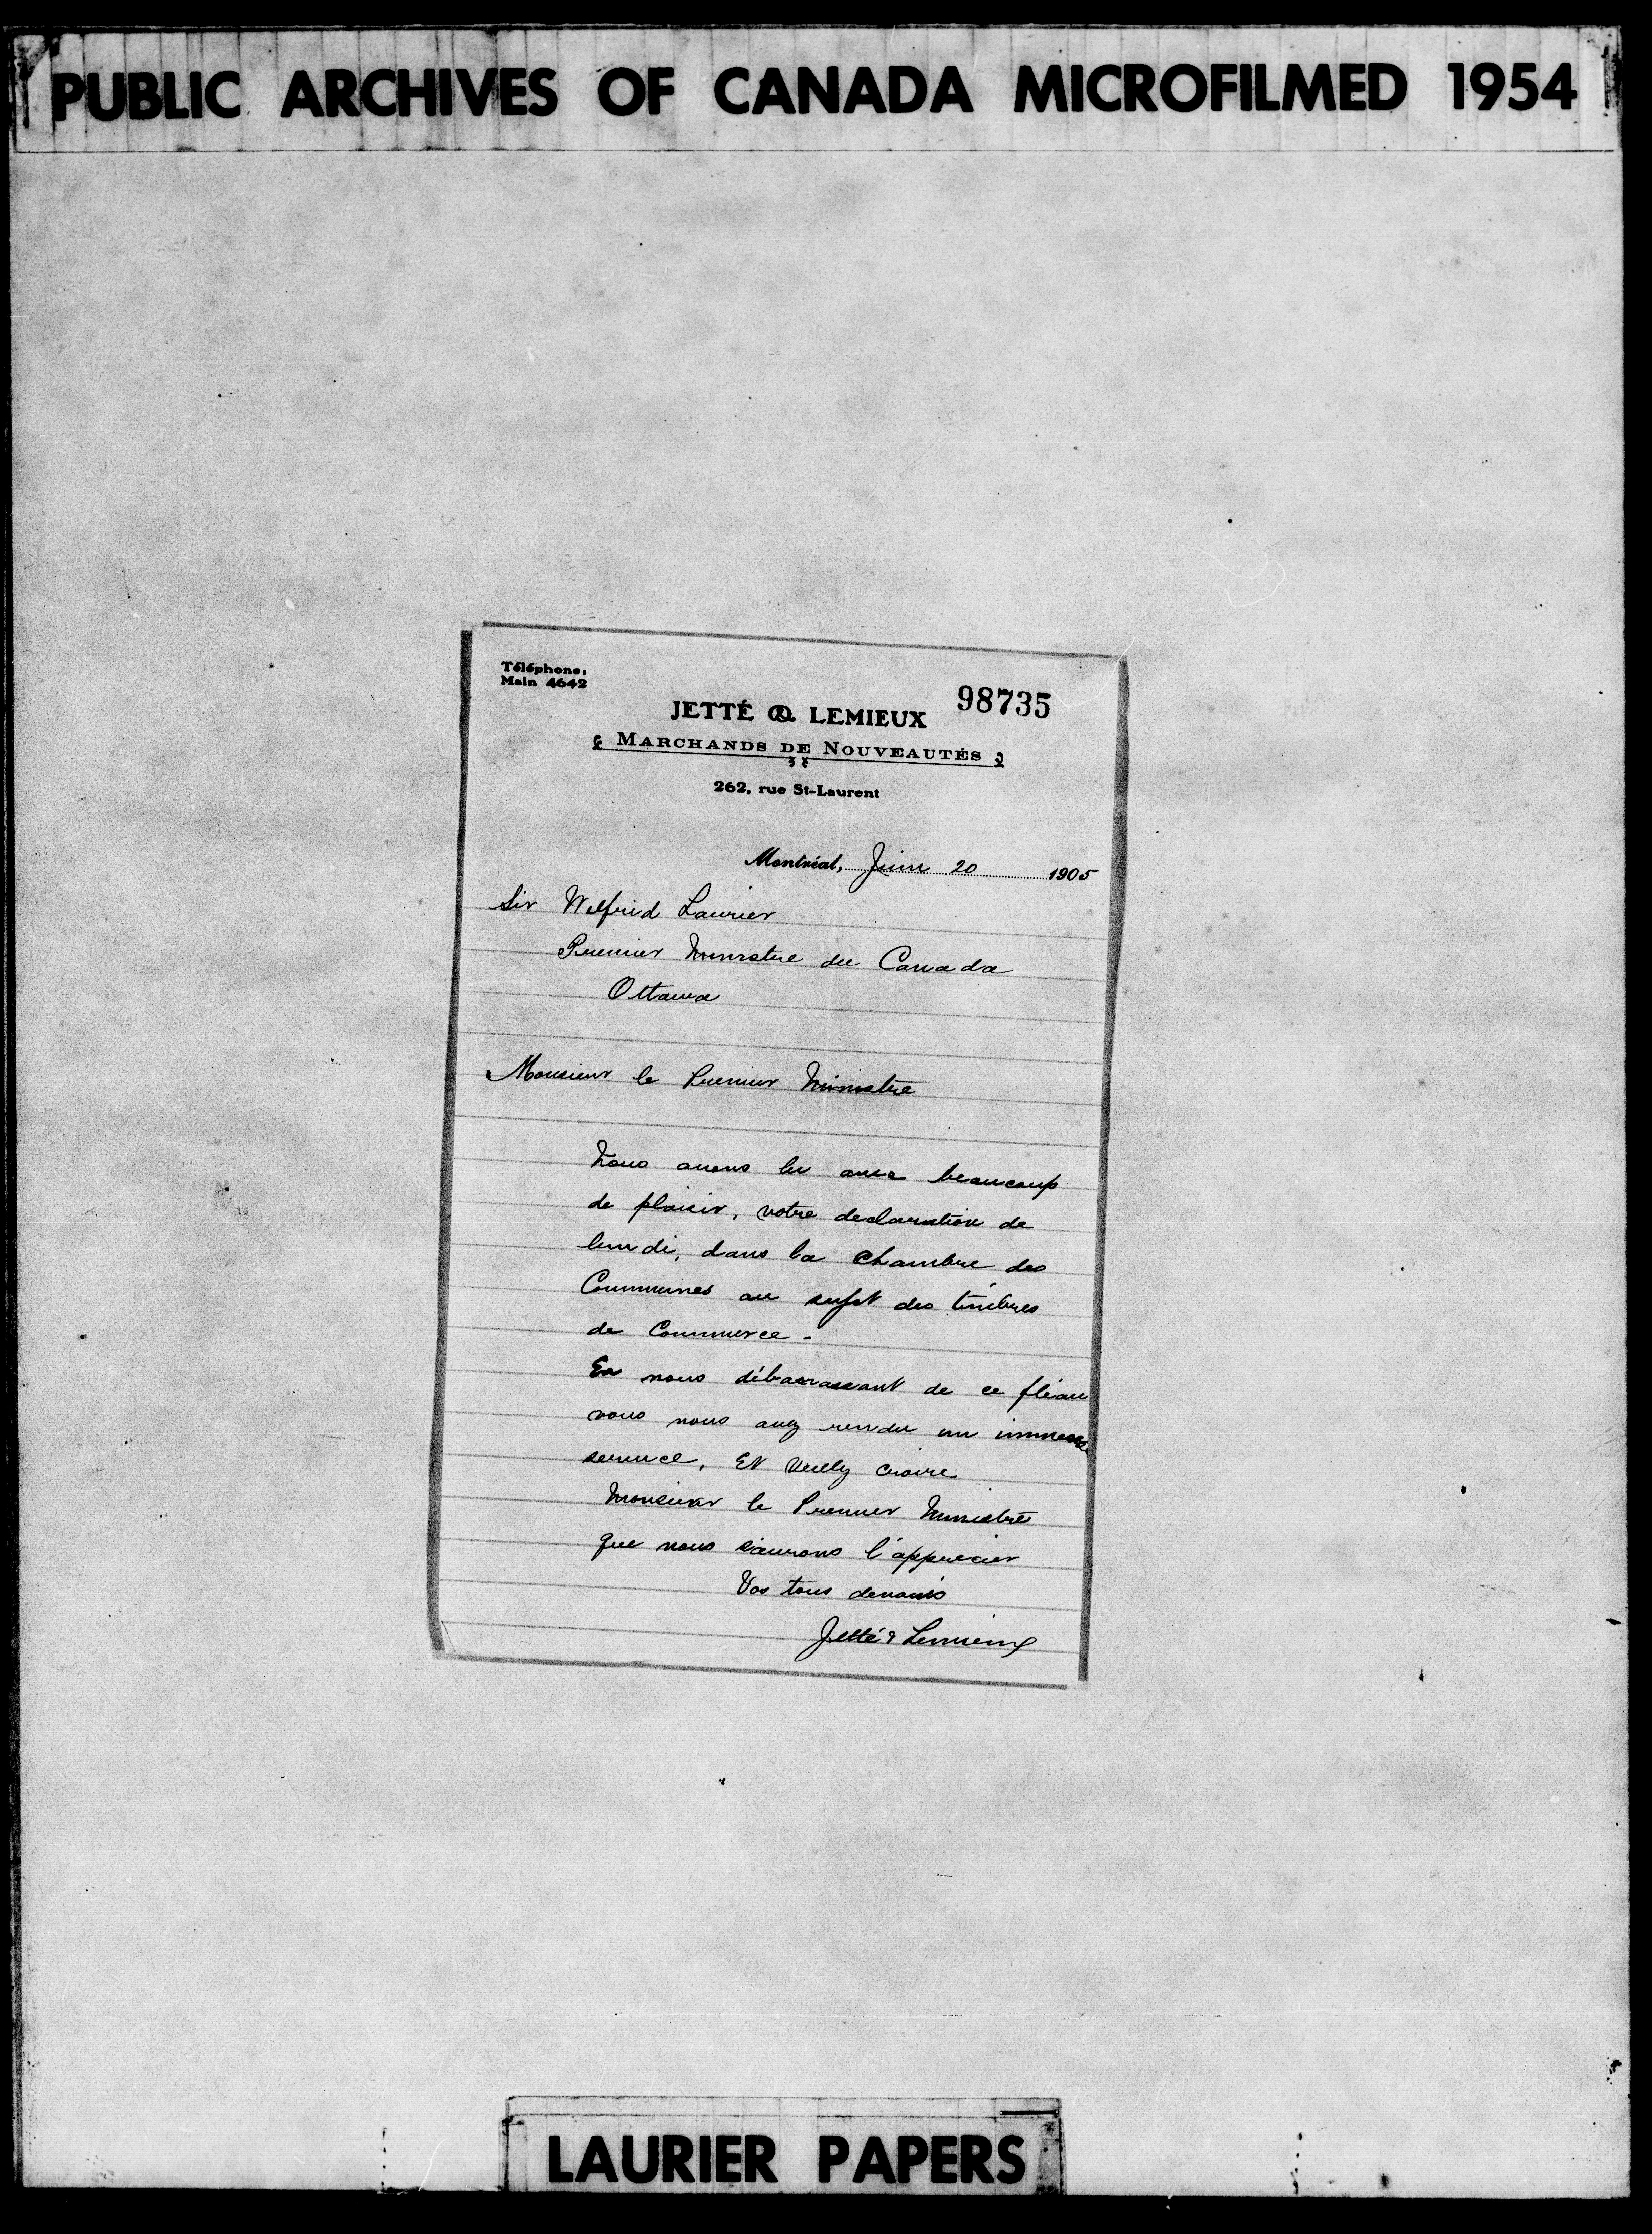 PUBLIC ARCHIVES OF CANADA MICROFILMED 1954
Téléphone:
Main 4642
98735
JETTÉ & LEMIEUX
MARCHANDS DE NOUVEAUTÉS
262, rue St-Laurent
Montréal, Juin 20 1905
Sir Wilfrid Laurier
Premier Ministre du Canada
Ottawa
Monsieur le Premier Ministre
Nous avons lu avec beaucoup
de plaisir, votre declaration de
lundi, dans la chambre des
Communes au sujet des timbres
de Commerce -
En nous débarrassant de ce fléau
vous nous avez rendu un immense
service, Et Veuillez croire
Monsieur le Premier Ministre
que nous saurons l'apprecier
Vos tous devoués
Jetté & Lemieux
LAURIER PAPERS